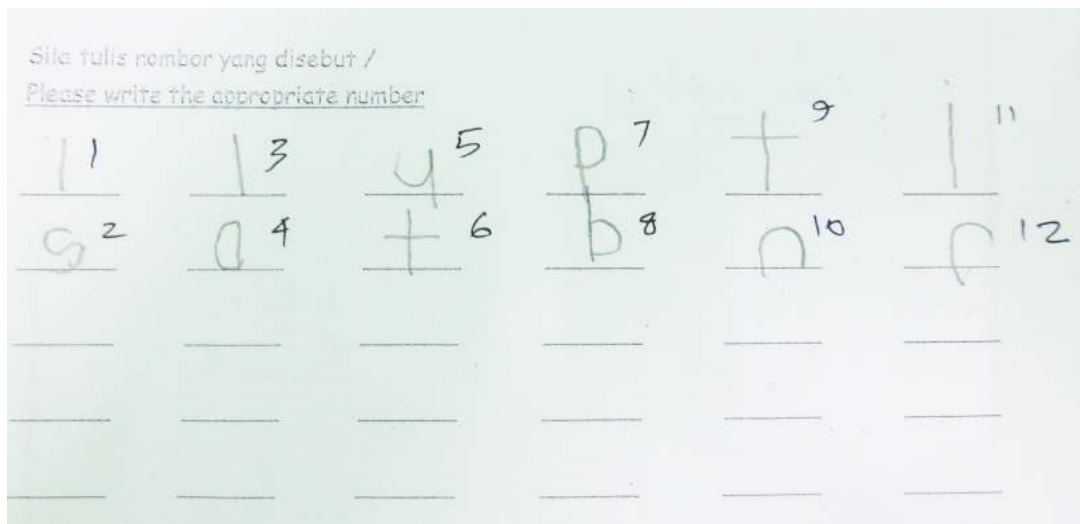 Sila tulis nombor yang disebut /
Please write the appropriate number
l 1 l 3 y 5 p 7 t 9 l 11
s 2 a 4 t 6 b 8 n 10 r 12